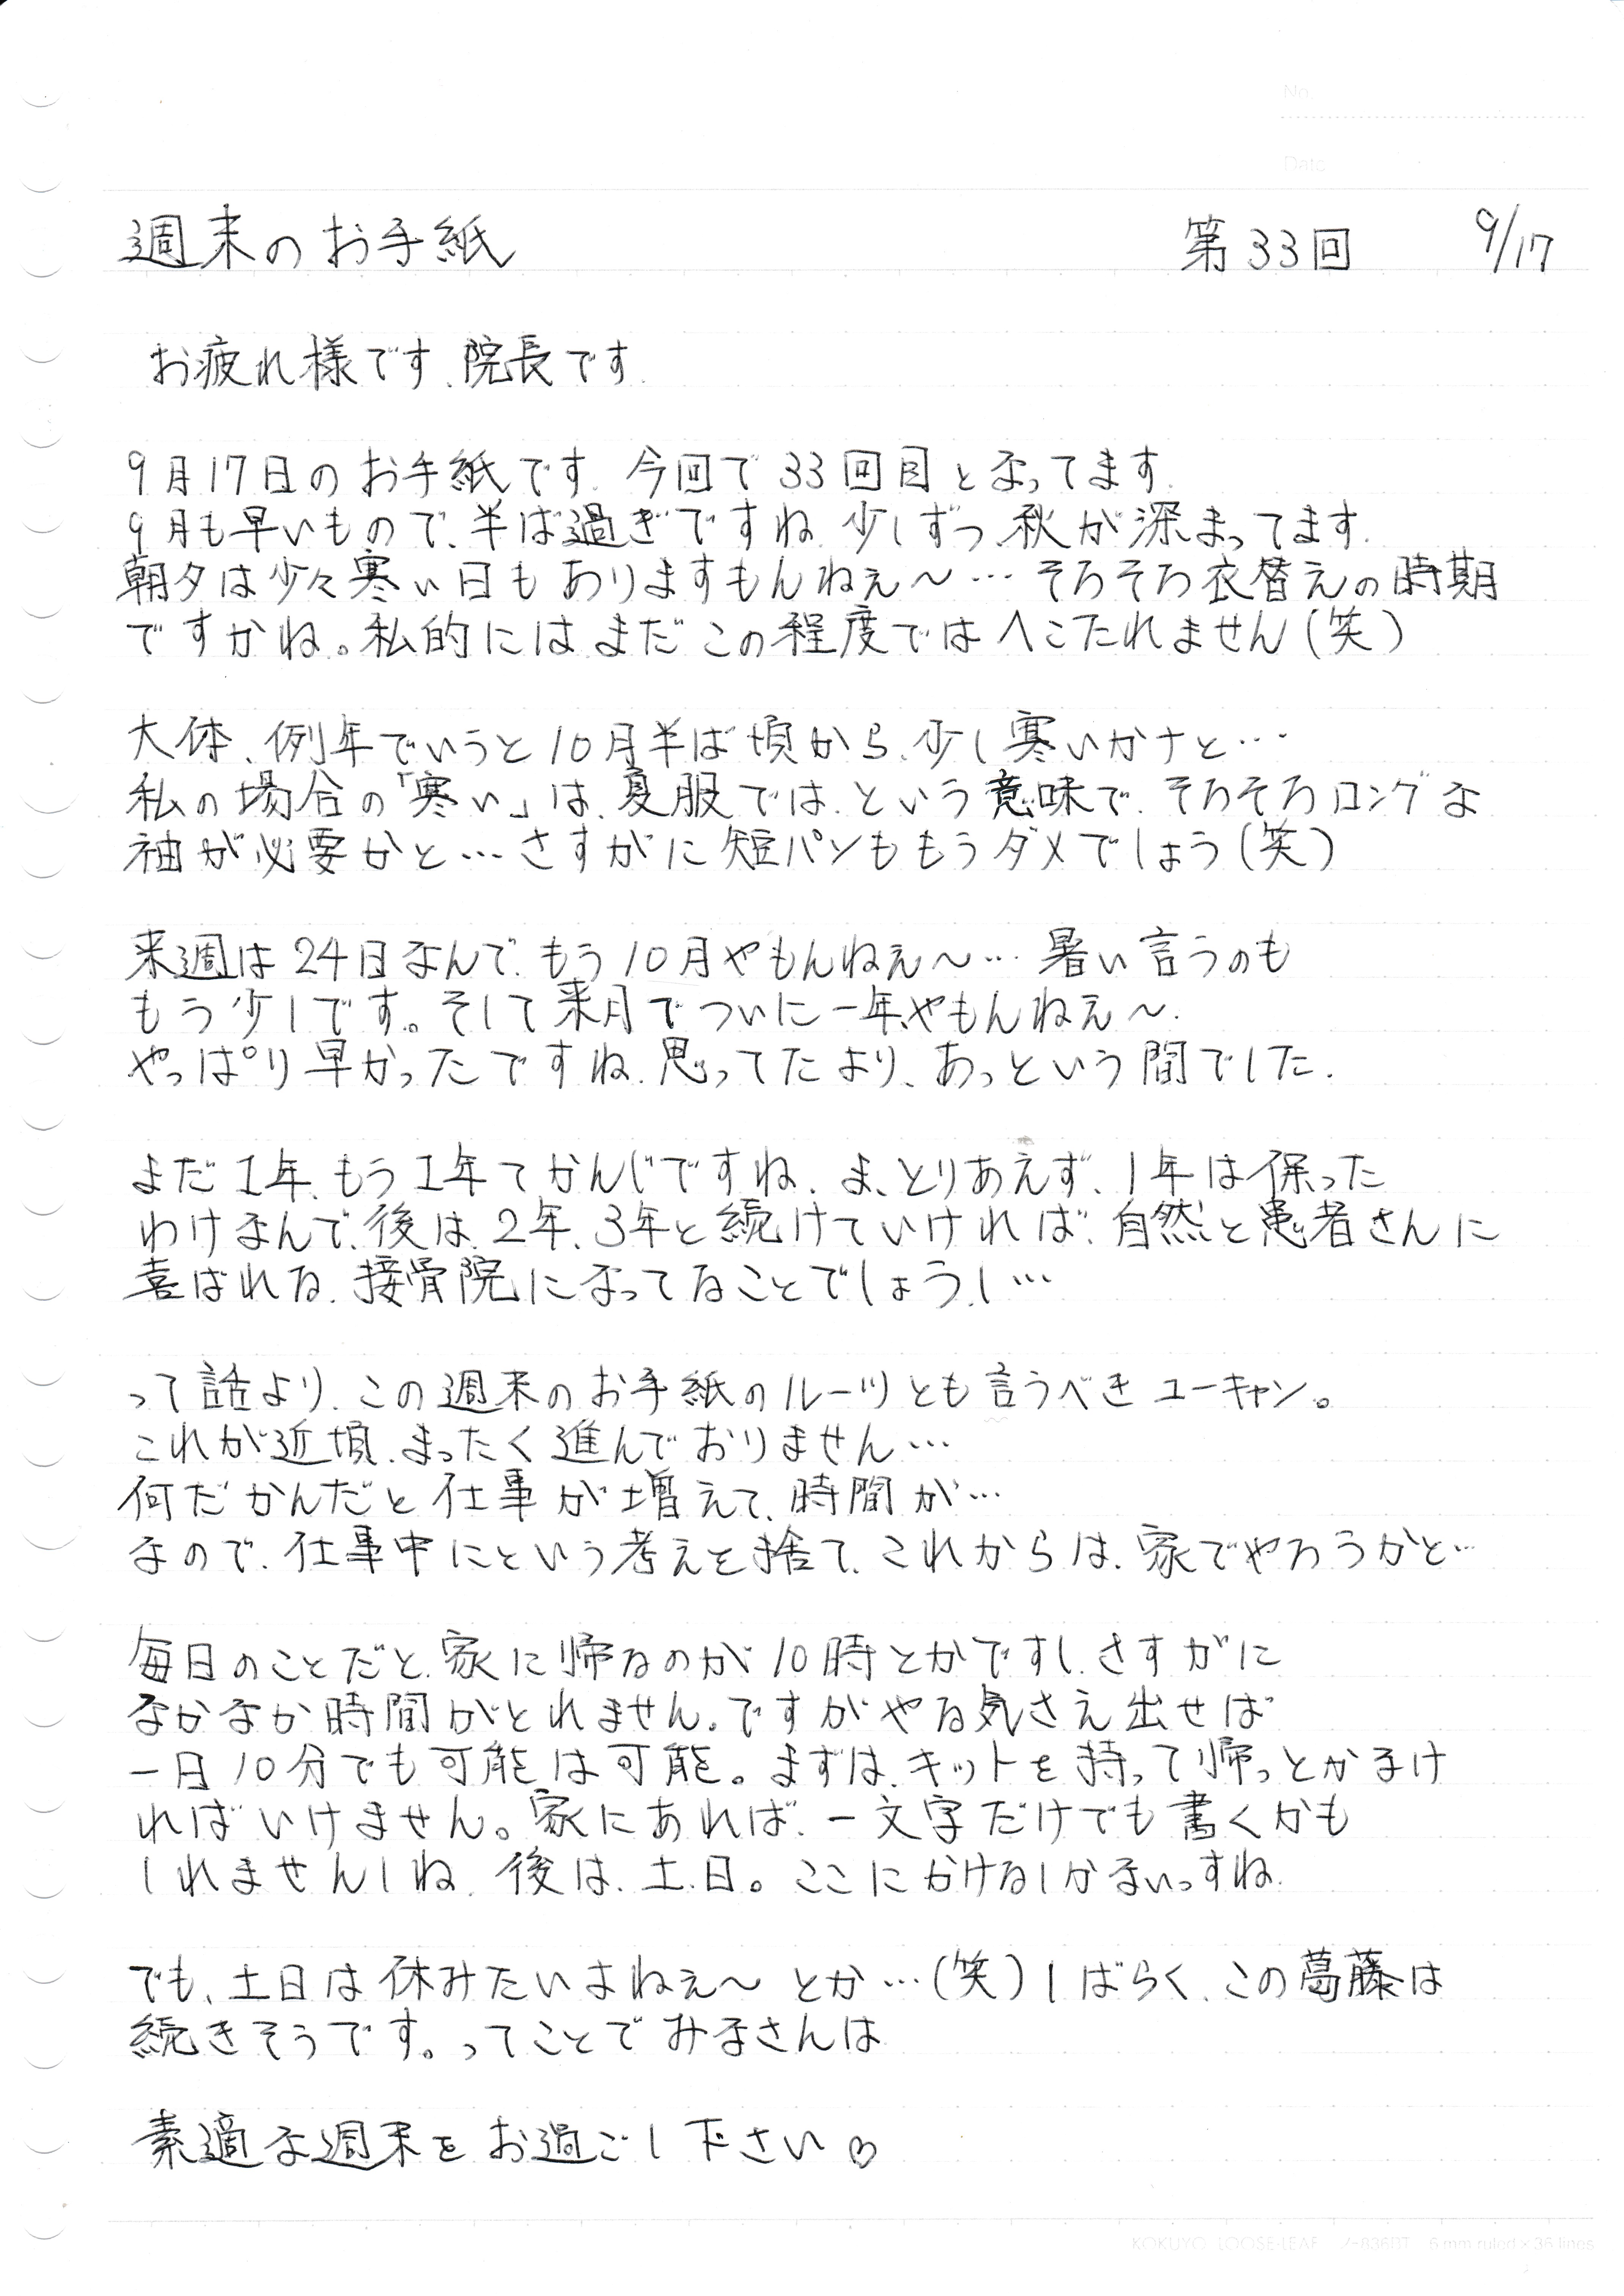 No.
Date
週末のお手紙 第33回 9/17
お疲れ様です、院長です。
9月17日のお手紙です。今回で33回目となってます。
9月も早いもので、半ば過ぎですね。少しずつ、秋が深まってます。
朝夕は少々寒い日もありますもんねぇ～…そろそろ衣替えの時期
ですかね。私的にはまだこの程度ではへこたれません(笑)
大体、例年でいうと10月半ば頃から、少し寒いかナと…
私の場合の「寒い」は、夏服では、という意味で、そろそろロングな
袖が必要かと…さすがに短パンももうダメでしょう(笑)
来週は24日なんで、もう10月やもんねぇ～…暑い言うのも
もう少しです。そして来月でついに一年やもんねぇ～。
やっぱり早かったですね。思ってたより、あっという間でした。
まだ1年、もう1年てかんじですね。ま、とりあえず、1年は保った
わけなんで、後は、2年、3年と続けていければ、自然と患者さんに
喜ばれる、接骨院になってることでしょうし…
って話より、この週末のお手紙のルーツとも言うべきユーキャン。
これが近頃、まったく進んでおりません…
何だかんだと仕事が増えて、時間が…
なので、仕事中にという考えを捨て、これからは、家でやろうかと…
毎日のことだと、家に帰るのが10時とかですし、さすがに
なかなか時間がとれません。ですがやる気さえ出せば
一日10分でも可能は可能。まずは、キットを持って帰っとかなけ
ればいけません。家にあれば、一文字だけでも書くかも
しれませんしね。後は、土、日。ここにかけるしかないっすね。
でも、土日は休みたいよねぇ～とか…(笑)しばらく、この葛藤は
続きそうです。ってことでみなさんは
素適な週末をお過ごし下さい♡
KOKUYO LOOSE-LEAF ノ-836BT 6 mm ruled × 36 lines